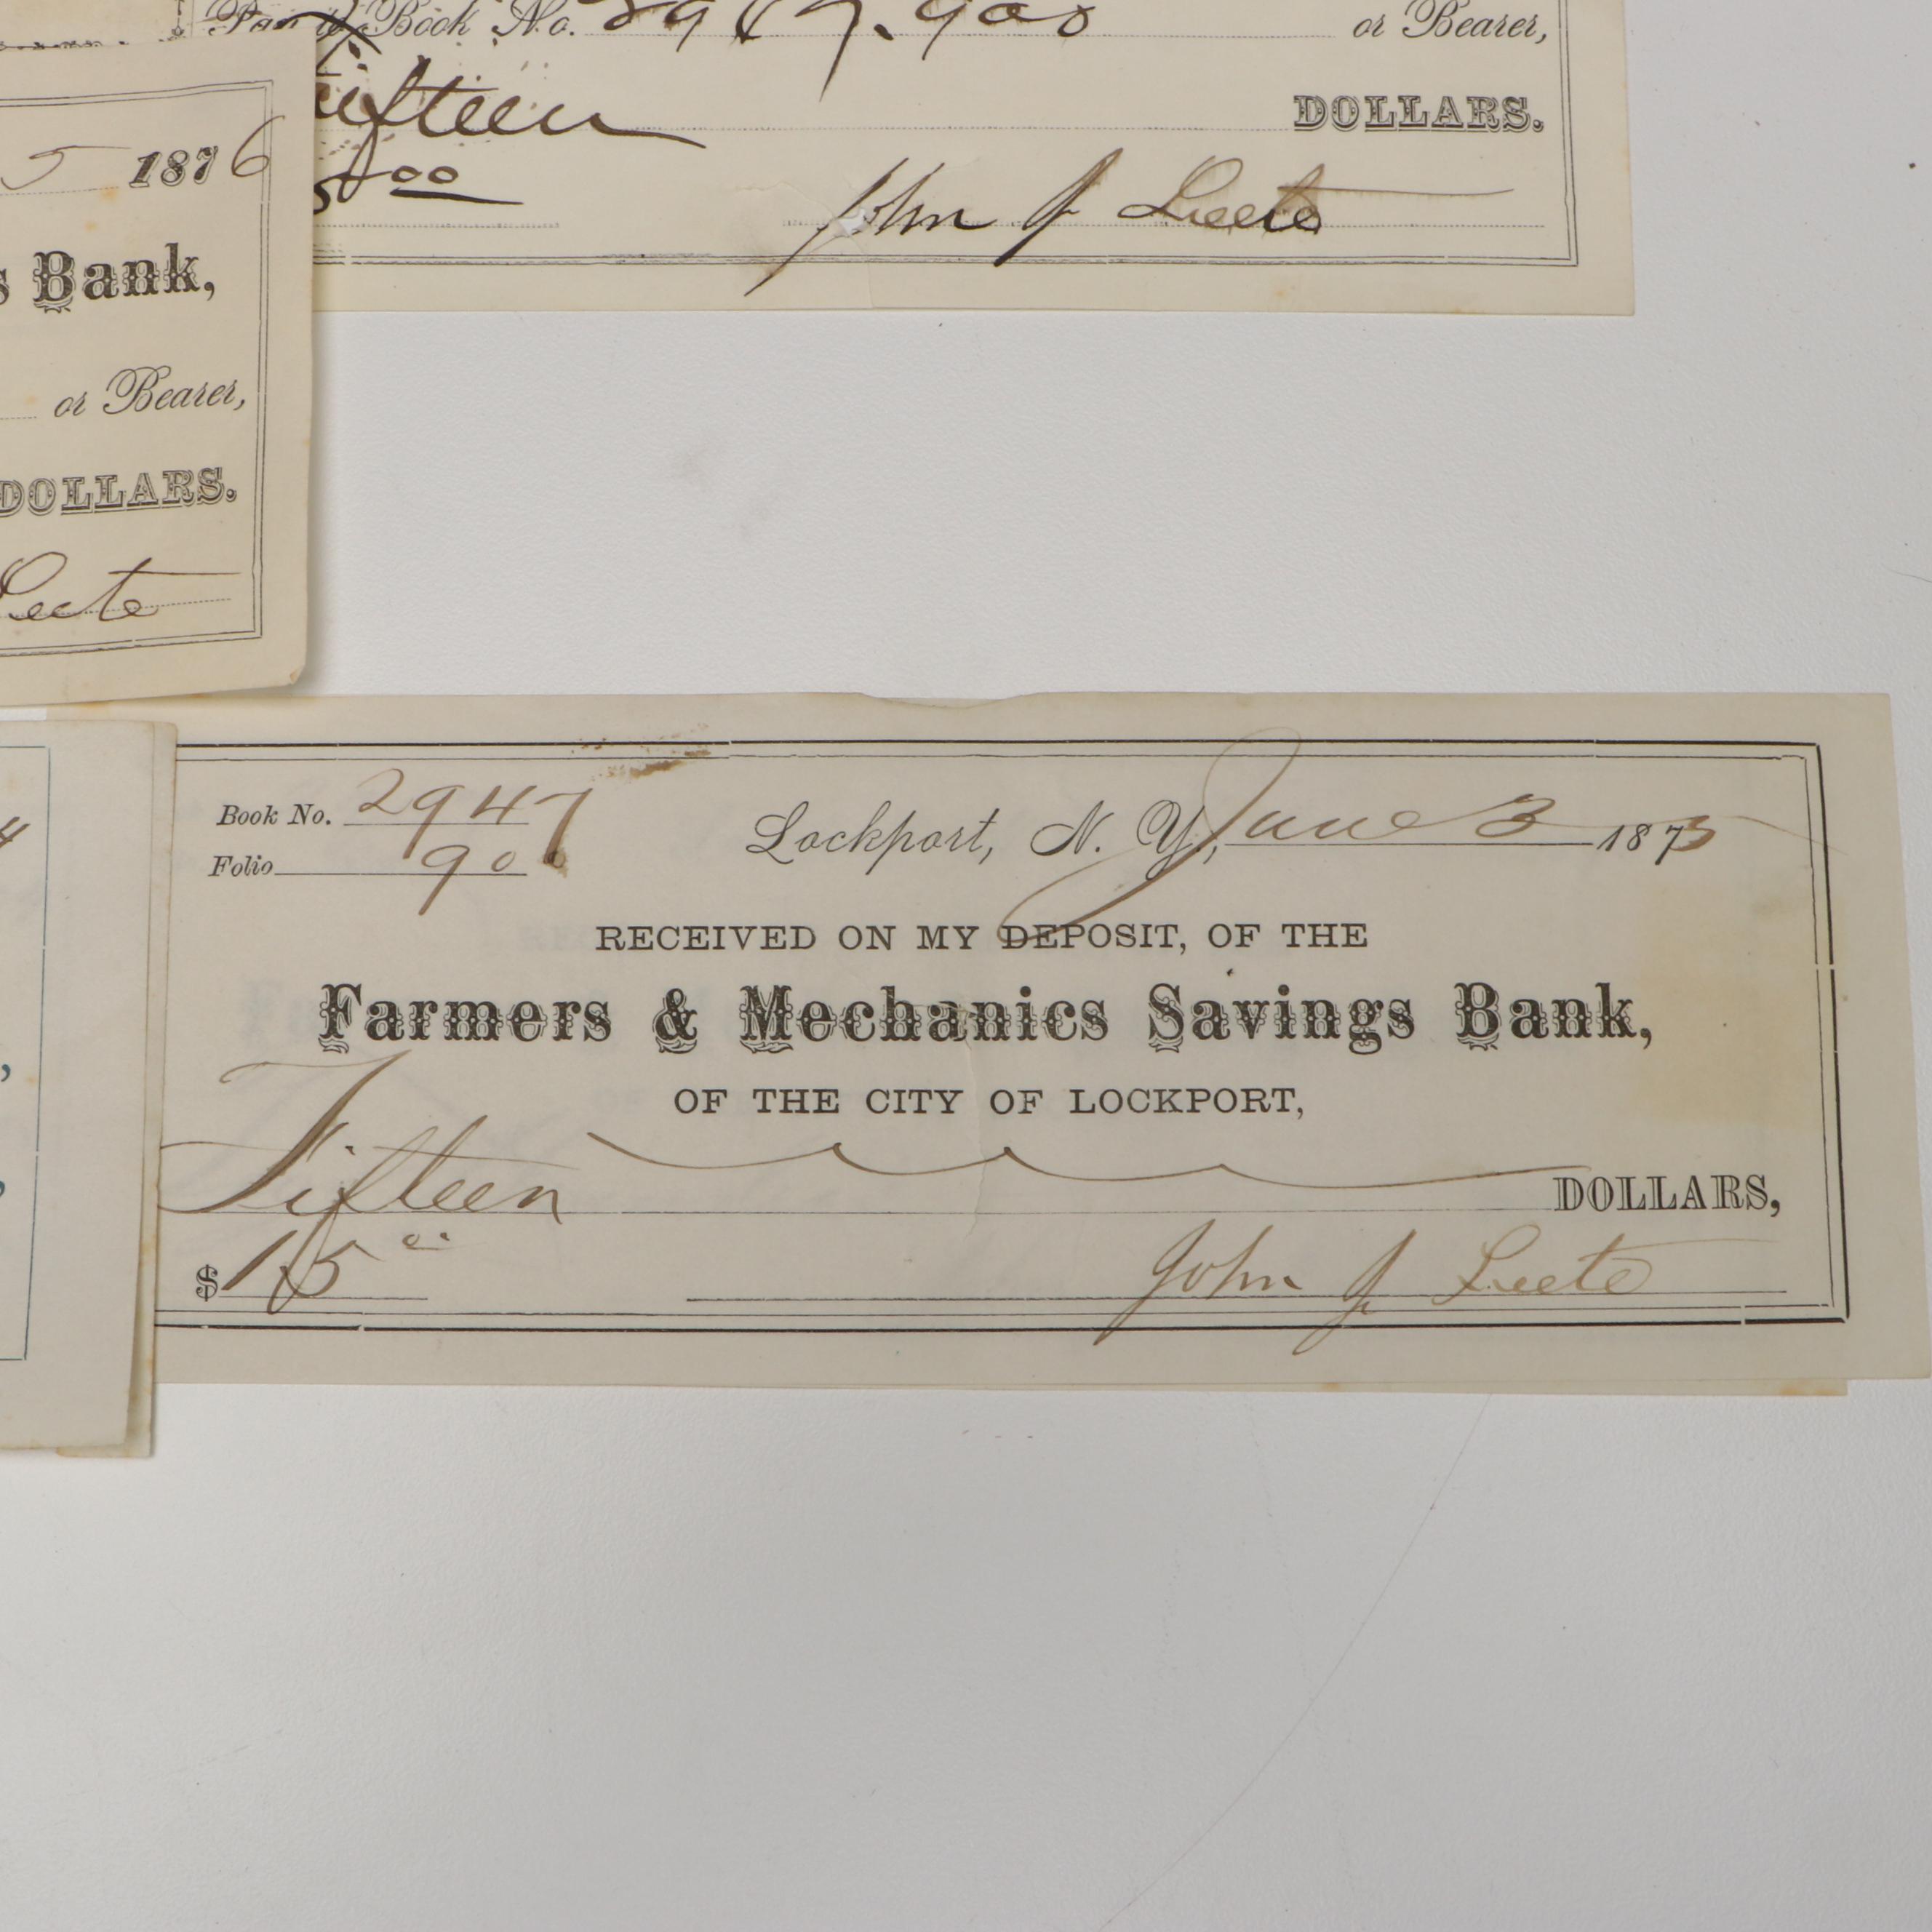 Book No. 2947.900 or Bearer,
Fifteen DOLLARS.
5 00
John J Leete
5 1876
s Bank,
or Bearer,
DOLLARS.
Leete
4
Book No. 2947
Folio 900
Lockport, N. Y., June 3 1875
RECEIVED ON MY DEPOSIT, OF THE
Farmers & Mechanics Savings Bank,
OF THE CITY OF LOCKPORT,
Fifteen DOLLARS,
$15 00
John J Leete